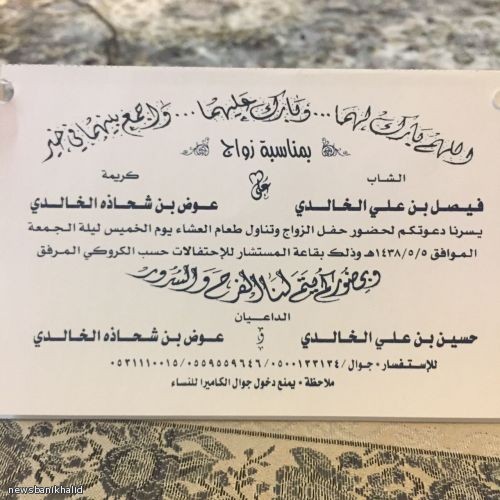 اللهم بارك لهما ... وبارك عليهما ... واجمع بينهما في خير
بمناسبة زواج
الشاب
كريمة
فيصل بن علي الخالدي
على
عوض بن شحاذه الخالدي
يسرنا دعوتكم لحضور حفل الزواج وتناول طعام العشاء يوم الخميس ليلة الجمعة
الموافق ١٤٣٨/٥/٥هـ وذلك بقاعة المستشار للإحتفالات حسب الكروكي المرفق
وبحضوركم يتم لنا الفرح والسرور
الداعيان
حسين بن علي الخالدي و عوض بن شحاذه الخالدي
للإستفسار • جوال / ٠٥٠٠١٣٣١٣٤ / ٠٥٥٩٥٥٩٦٤٦ / ٠٥٣١١١٠٠١٥
ملاحظة • يمنع دخول جوال الكاميرا للنساء
newsbanikhalid